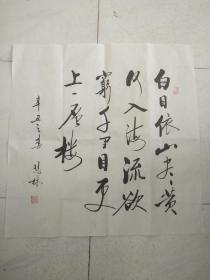 白日依山尽黄
河入海流欲
窮千里目更
上一層樓
辛丑之春